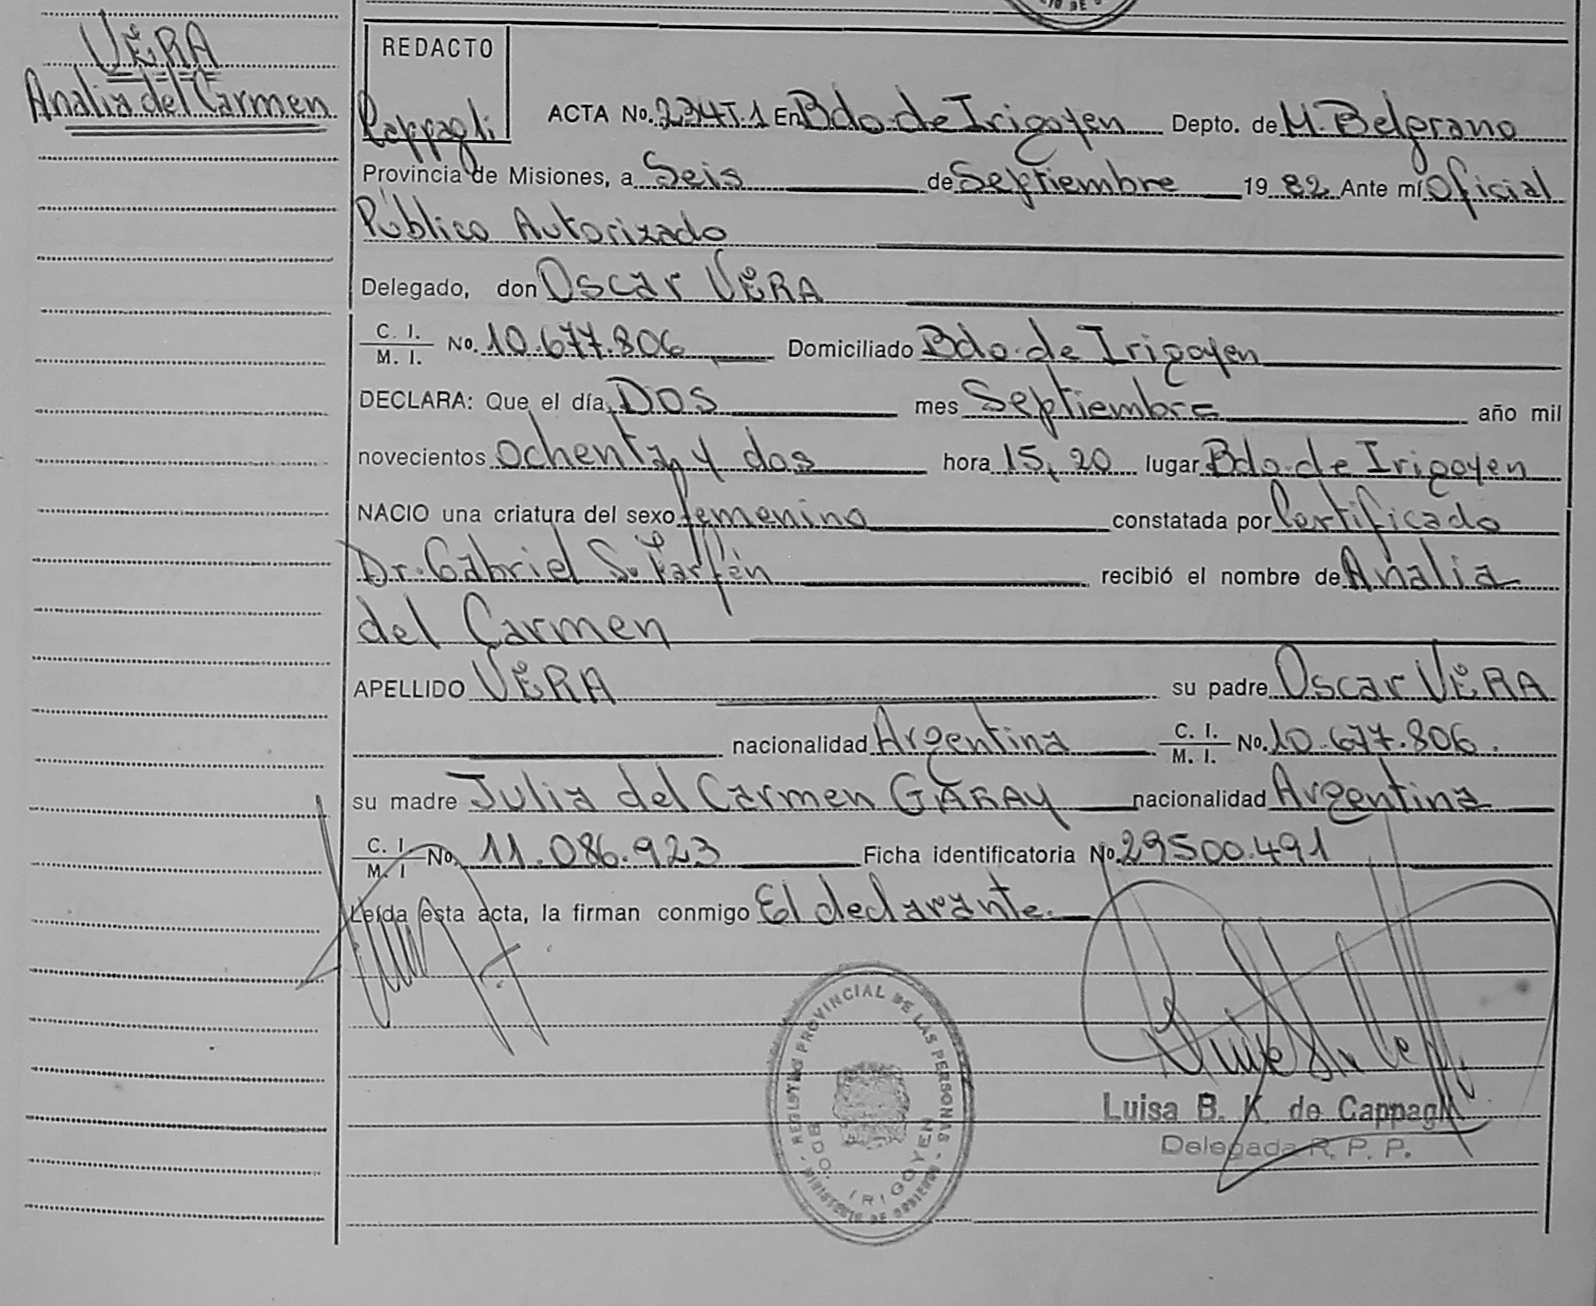 VERA
Analia del Carmen
REDACTO
Cappagli
ACTA No. 234T.1 En Bdo. de Irigoyen Depto. de M. Belgrano
Provincia de Misiones, a Seis de Septiembre 19 82 Ante mí Oficial
Público Autorizado
Delegado, don Oscar VERA
C. I. / M. I. No. 10.677.806 Domiciliado Bdo. de Irigoyen
DECLARA: Que el día Dos mes Septiembre año mil
novecientos ochenta y dos hora 15,20 lugar Bdo. de Irigoyen
NACIO una criatura del sexo femenino constatada por Certificado
Dr. Gabriel S. Farfén recibió el nombre de Analia
del Carmen
APELLIDO VERA su padre Oscar VERA
nacionalidad Argentina C. I. / M. I. No. 10.677.806.
su madre Julia del Carmen GARAY nacionalidad Argentina
C. I / M. I No. 11.086.923 Ficha identificatoria No. 29500.491
Leída esta acta, la firman conmigo El declarante.
REGISTRO PROVINCIAL DE LAS PERSONAS - MINISTERIO DE GOBIERNO -
BDO. IRIGOYEN
Luisa B. K. de Cappagli
Delegada R. P. P.